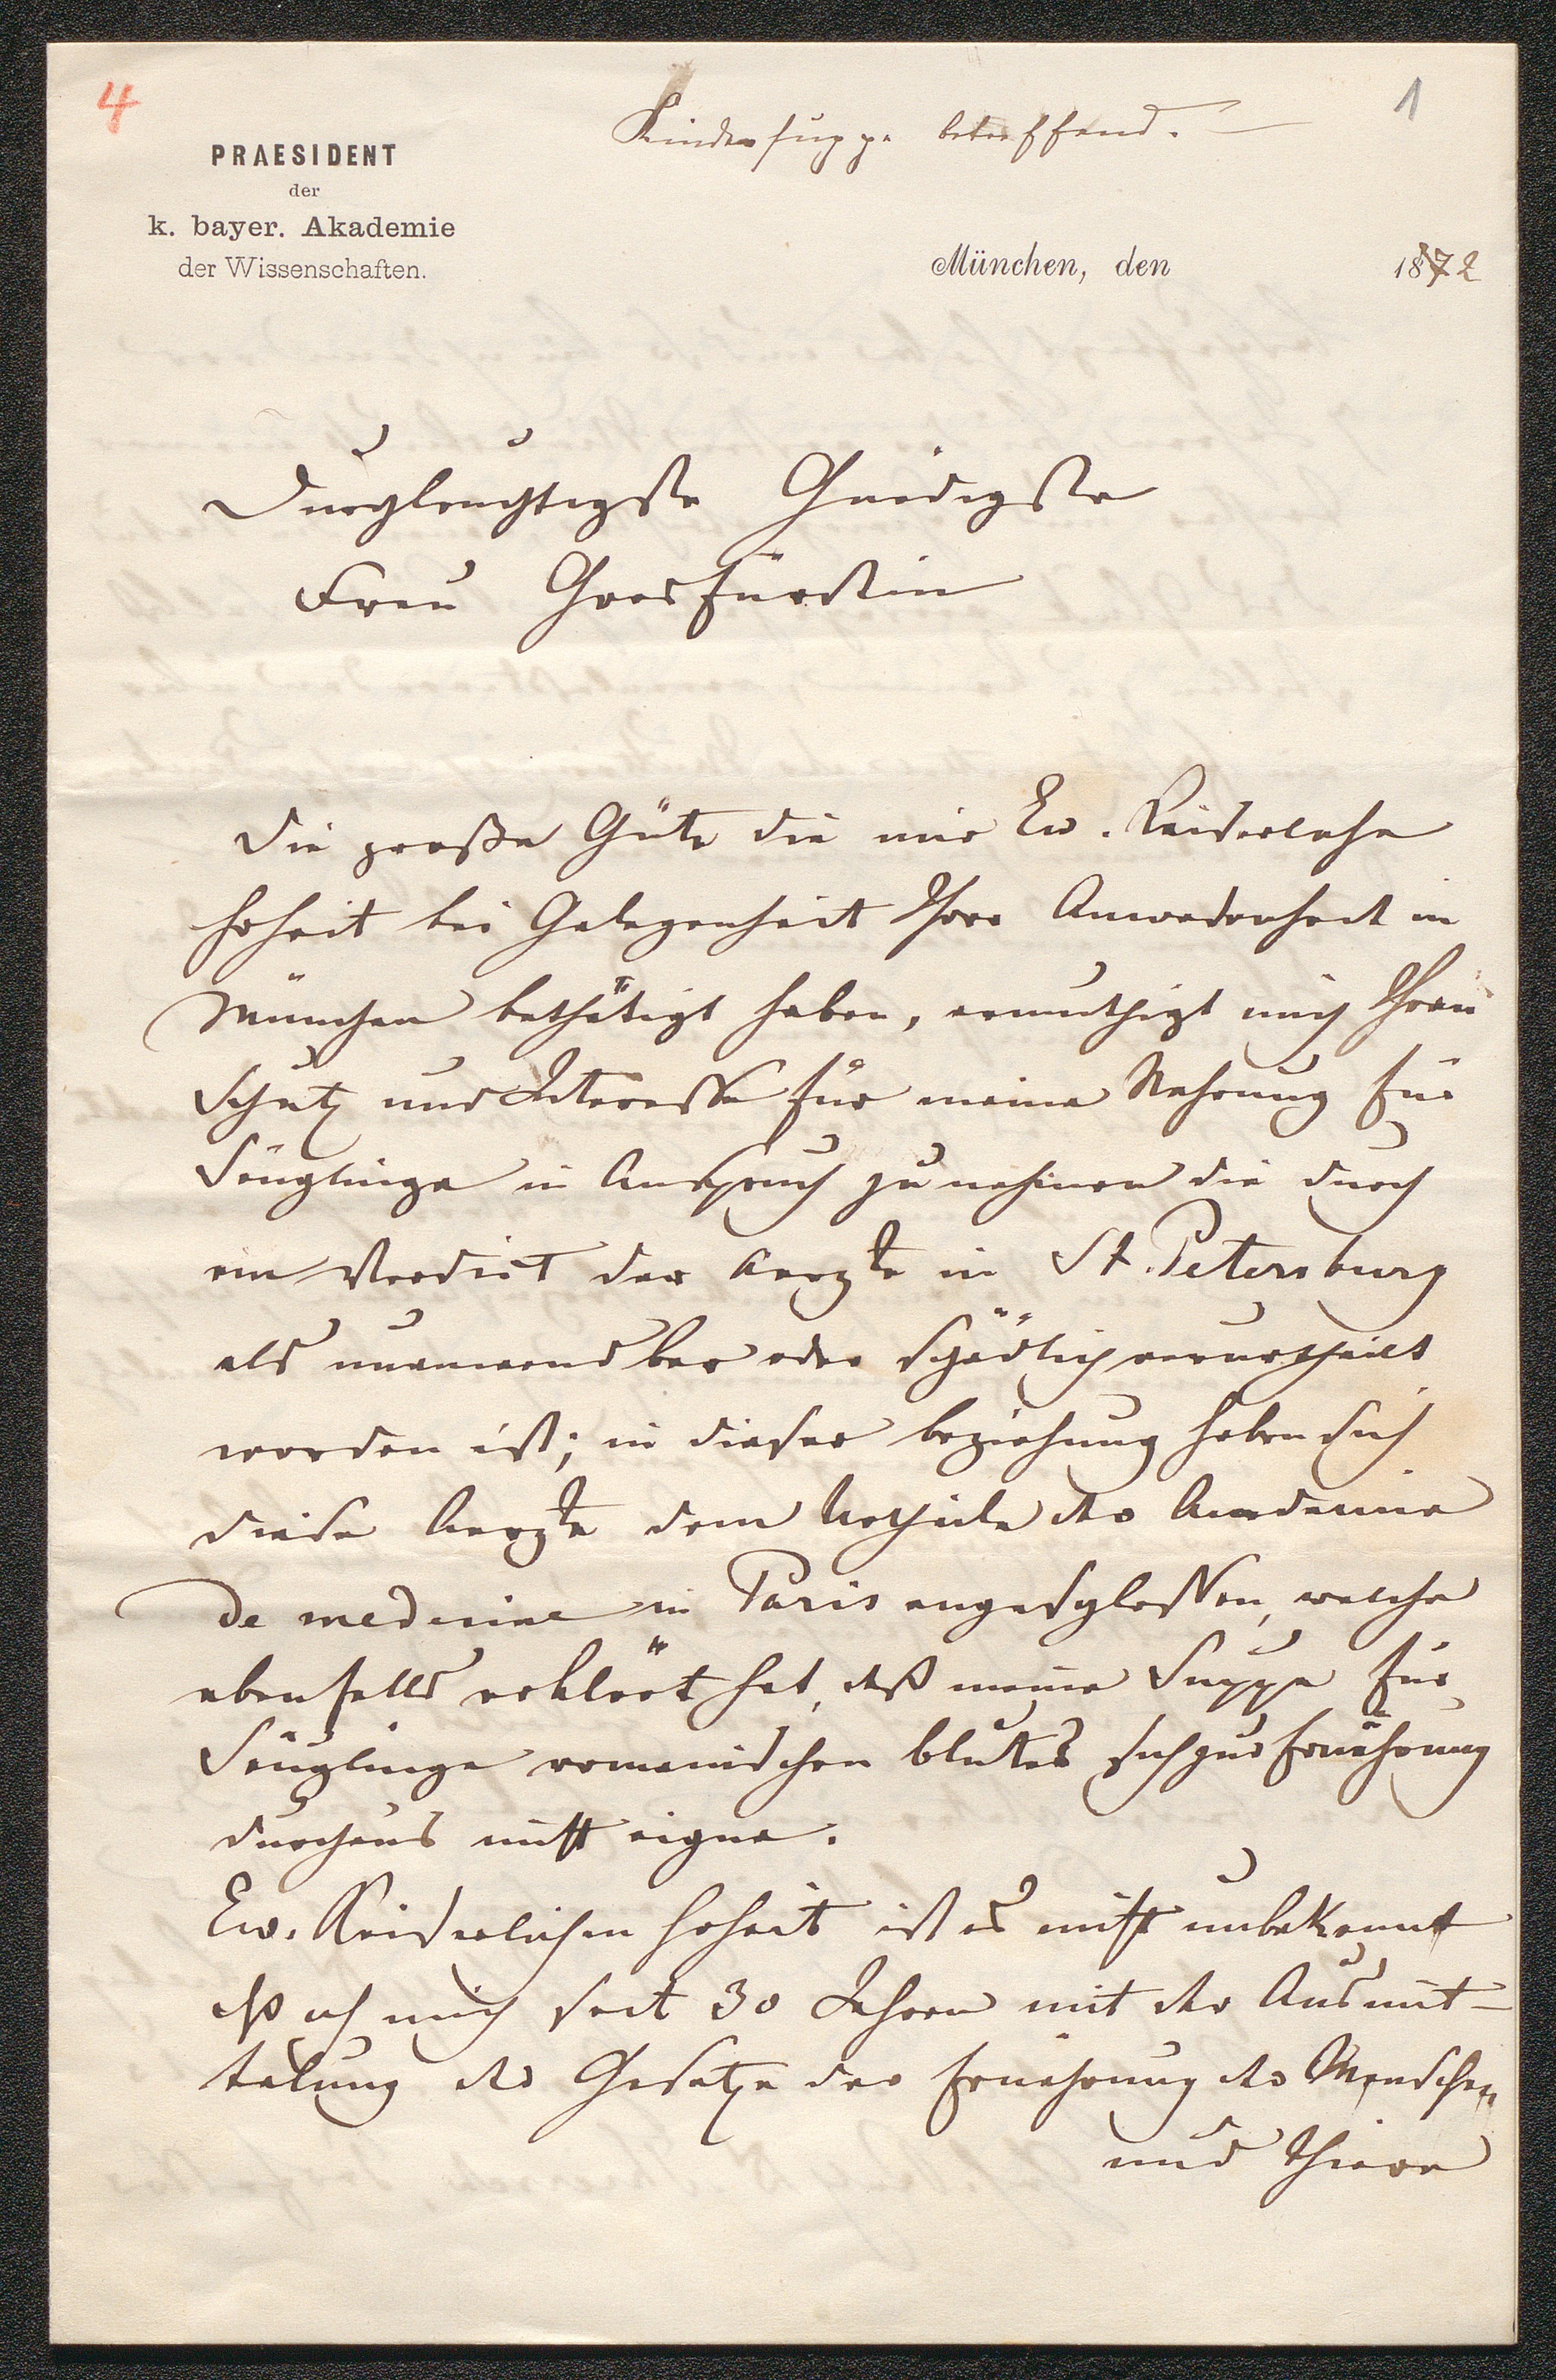 4
Kindersuppe betreffend. —
1
PRAESIDENT
der
k. bayer. Akademie
der Wissenschaften.
München, den 1872
Durchleuchtigste Gnädigste
Frau Grosfürstin
Die große Güte die mir Ew. Kaiserliche
Hoheit bei Gelegenheit Ihrer Anwesenheit in
München bethätigt haben, ermuthigt mich Ihren
Schutz und Interesse für meine Nahrung für
Säuglinge in Anspruch zu nehmen die durch
ein Verdict der Aerzte in St. Petersburg
als unanwendbar oder schädlich verurtheilt
worden ist; in dieser Beziehung haben sich
diese Aerzte dem Urtheile der Academie
de medecine in Paris angeschlossen, welche
ebenfalls erklärt hat, daß meine Suppe für
Säuglinge romanischen Blutes sich zur Ernährung
durchaus nicht eigne.
Ew. Kaiserlichen Hoheit ist es nicht unbekannt
daß ich mich seit 30 Jahren mit der Ausmit-
telung der Gesetze der Ernährung der Menschen
und Thiere